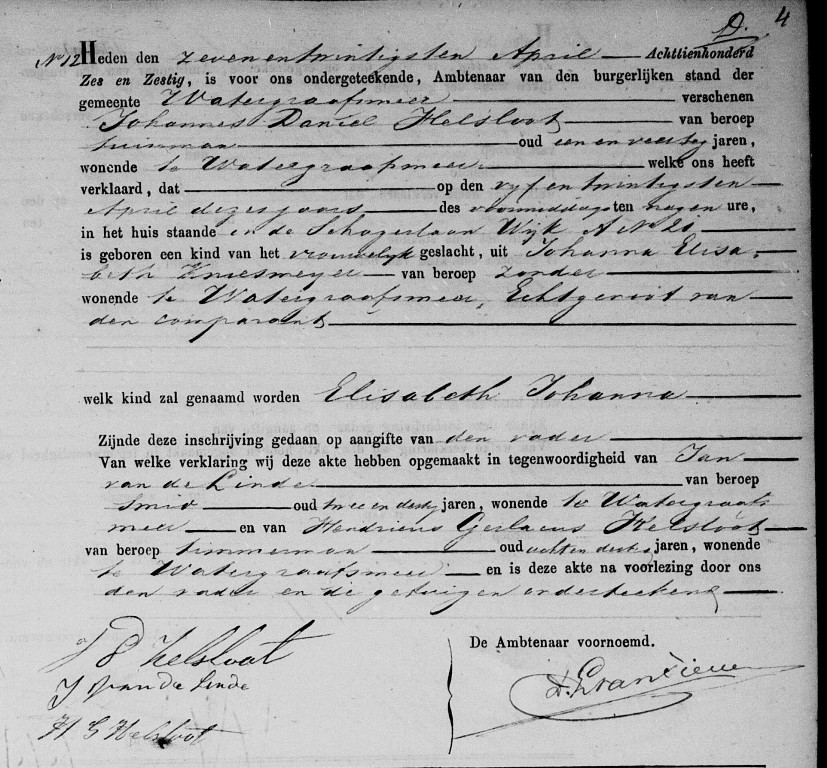 D. 4
No 12 Heden den zevenentwintigsten April Achttienhonderd
Zes en Zestig, is voor ons ondergeteekende, Ambtenaar van den burgerlijken stand der
gemeente Watergraafsmeer verschenen
Johannes Daniel Helsloot van beroep
tuinman oud een en veertig jaren,
wonende te Watergraafsmeer welke ons heeft
verklaard, dat op den vyf entwintigsten
April dezes jaars des voormiddags ten negen ure,
in het huis staande in de Schagerlaan Wijk A No 21
is geboren een kind van het vrouwelyk geslacht, uit Johanna Elisa-
beth Kniesmeyer van beroep zonder
wonende te Watergraafsmeer, Echtgenoot van
den comparant
welk kind zal genaamd worden Elisabeth Johanna
Zijnde deze inschrijving gedaan op aangifte van den vader
Van welke verklaring wij deze akte hebben opgemaakt in tegenwoordigheid van Jan
van de Linde van beroep
smid oud twee en dertig jaren, wonende te Watergraafs
meer en van Hendricus Gerlacus Helsloot
van beroep timmerman oud acht en dertig jaren, wonende
te Watergraafsmeer en is deze akte na voorlezing door ons
den vader en de getuigen onderteekend
De Ambtenaar voornoemd.
J D Helsloot
J van de Linde
H G Helsloot